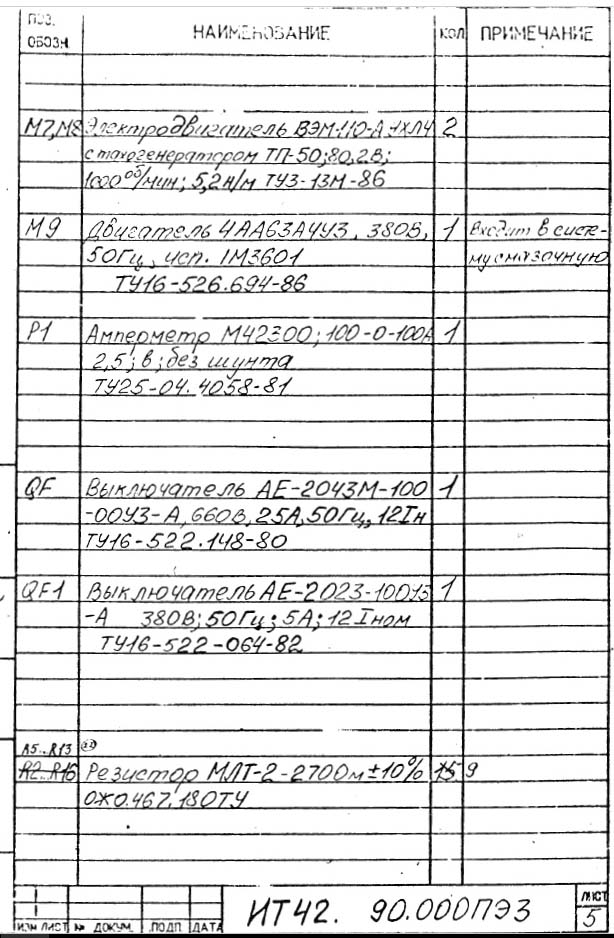 ПОЗ. ОБОЗН. НАИМЕНОВАНИЕ КОЛ ПРИМЕЧАНИЕ
М7,М8 Электродвигатель ВЭМ-110-А УХЛ4 2
с тахогенератором ТП-50;80,2В;
1000 об/мин; 5,2 н/м ТУ3-13М-86
М9 Двигатель 4АА63А4У3, 380В, 1 Входит в систе-
50Гц, исп. IM3601 му смазочную
ТУ16-526.694-86
Р1 Амперметр М42300; 100-0-100А 1
2,5; в; без шунта
ТУ25-04.4058-81
QF Выключатель АЕ-2043М-100 1
-00У3-А, 660В, 25А, 50Гц, 12Iн
ТУ16-522.148-80
QF1 Выключатель АЕ-2023-100У3 1
-А 380В; 50Гц; 5А; 12Iном
ТУ16-522-064-82
R5..R13
R2..R16 Резистор МЛТ-2-270Ом±10% 15 9
ОЖ0.467.180ТУ
ИТ42. 90.000ПЭ3
ЛИСТ
5
ИЗМ ЛИСТ № ДОКУМ. ПОДП. ДАТА